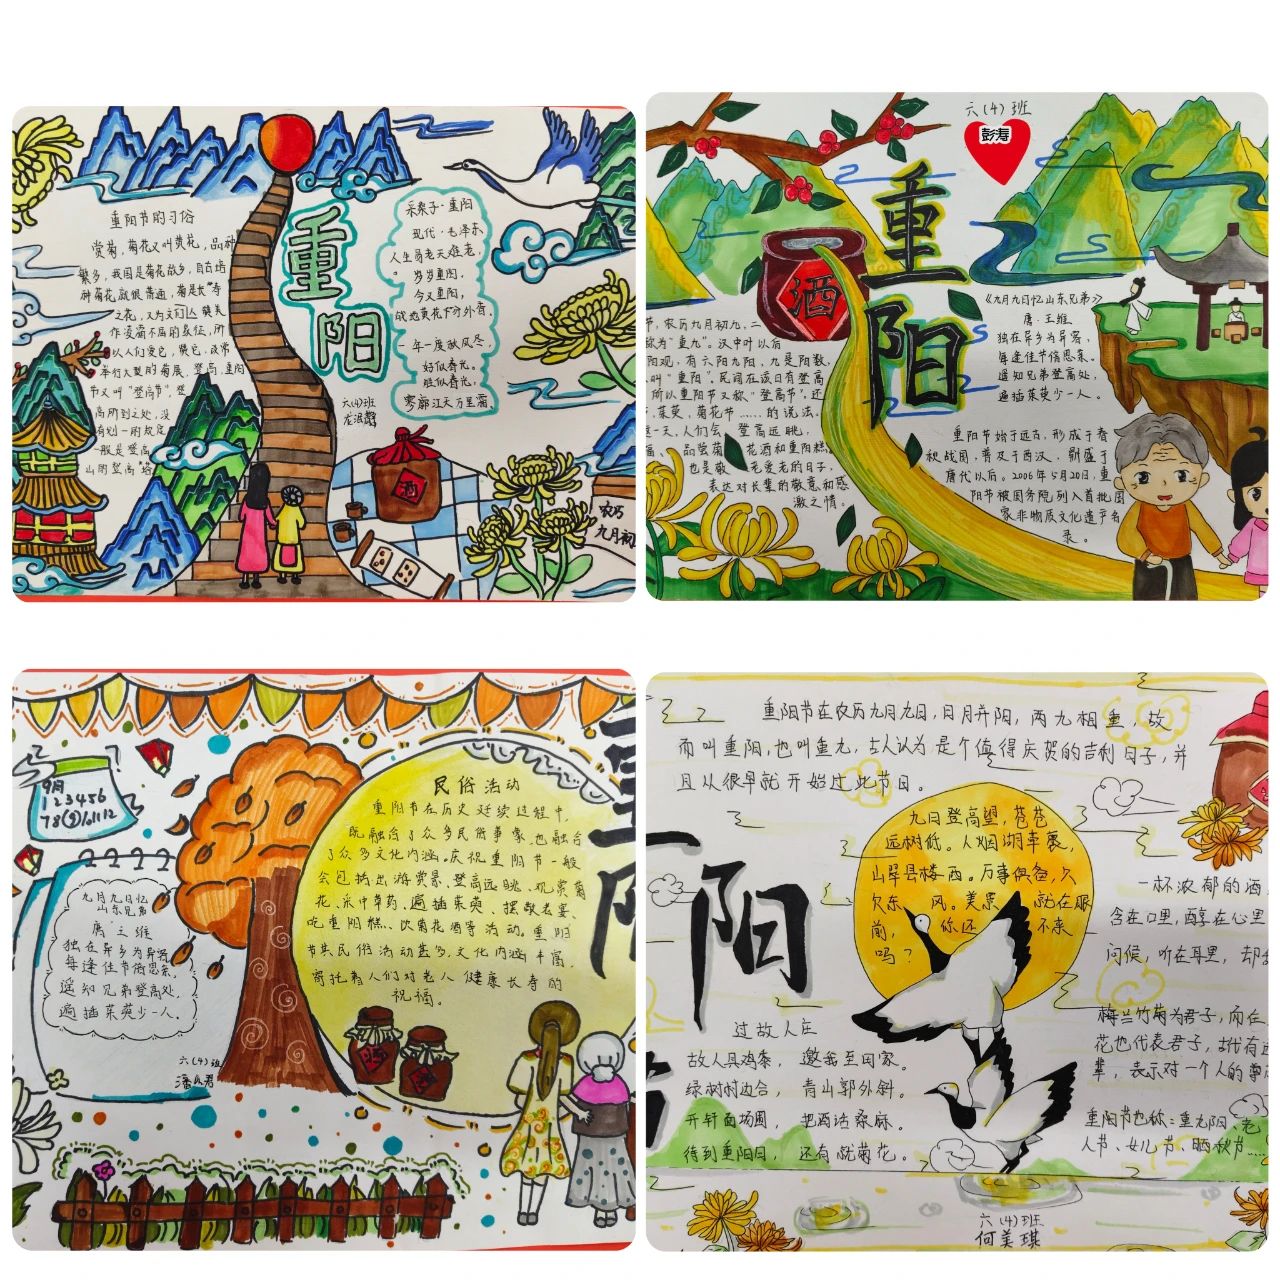 重阳节的习俗
赏菊,菊花又叫黄花,品种
繁多,我国是菊花故乡,自古培
种菊花就很普通,菊是长寿
之花,又为文人们
作凌霜不屈的象征,所
以人们爱它,赞它,故常
举行大型的菊展。登高,重阳
节又叫"登高节",登
高所到之处,没
有划一的规定
一般是登高
山的登高"塔
重
阳
采桑子·重阳
现代·毛泽东
人生易老天难老,
岁岁重阳,
今又重阳,
战地黄花下分外香。
一年一度秋风尽,
好似春光。
胜似春光,
寥廓江天万里霜。
六(4)班
酒
农历
九月初
六(4)班
彭海
重
阳
酒
节,农历九月初九,二
称为"重九"。汉中叶以后
阳观,有六阴九阳,九是阳数,
叫"重阳"。民间在该日有登高
所以重阳节又称"登高节"。还
、茱萸,菊花节……的说法。
这一天,人们会 登高远眺,
品尝菊 花酒和重阳糕
也是敬 老爱老的日子,
表达对长辈的敬意和感
激之情。
《九月九日忆山东兄弟》
唐·王维
独在异乡为异客,
每逢佳节倍思亲。
遥知兄弟登高处,
遍插茱萸少一人。
重阳节始于远古,形成于春
秋战国,普及于西汉,鼎盛于
唐代以后。2006年5月20日,重
阳节被国务院列入首批国
家非物质文化遗产名
录。
9月
1 2 3 4 5 6
7 8 (9) 10 11 12
九月九日忆
山东兄弟
唐 王维
独在异乡为异客
每逢佳节倍思亲,
遥知兄弟登高处,
遍插茱萸少一人。
六(4)班
民俗活动
重阳节在历史延续过程中,
既融合了众多民俗事象也融合
了众多文化内涵。庆祝重阳节一般
会包括出游赏景、登高远眺、观赏菊
花、采中草药、遍插茱萸、摆敬老宴、
吃重阳糕、饮菊花酒等活动。重阳
节其民俗活动甚多,文化内涵丰富,
寄托着人们对老人健康长寿的
祝福。
重阳节在农历九月九日,日月并阳,两九相重,故
而叫重阳,也叫重九,古人认为是个值得庆贺的吉利日子,并
且从很早就开始过此节日。
阳
九日登高望,苍苍
远树低。人烟湖草裏,
山翠县楼西。万事俱鱼,欠
欠东 风。美景 就在眼
前, 你还 不来
吗?
过故人庄
故人具鸡黍, 邀我至田家。
绿树村边合, 青山郭外斜。
开轩面场圃, 把酒话桑麻。
待到重阳日, 还有就菊花。
一杯浓郁的酒
含在口里,醇在心里
问候,听在耳里,却
梅兰竹菊为君子,而在
花也代表君子,古代有
辈,表示对一个人的尊
重阳节也称:重九阳、老
人节、女儿节、晒秋节……
六(4)班
何美琪